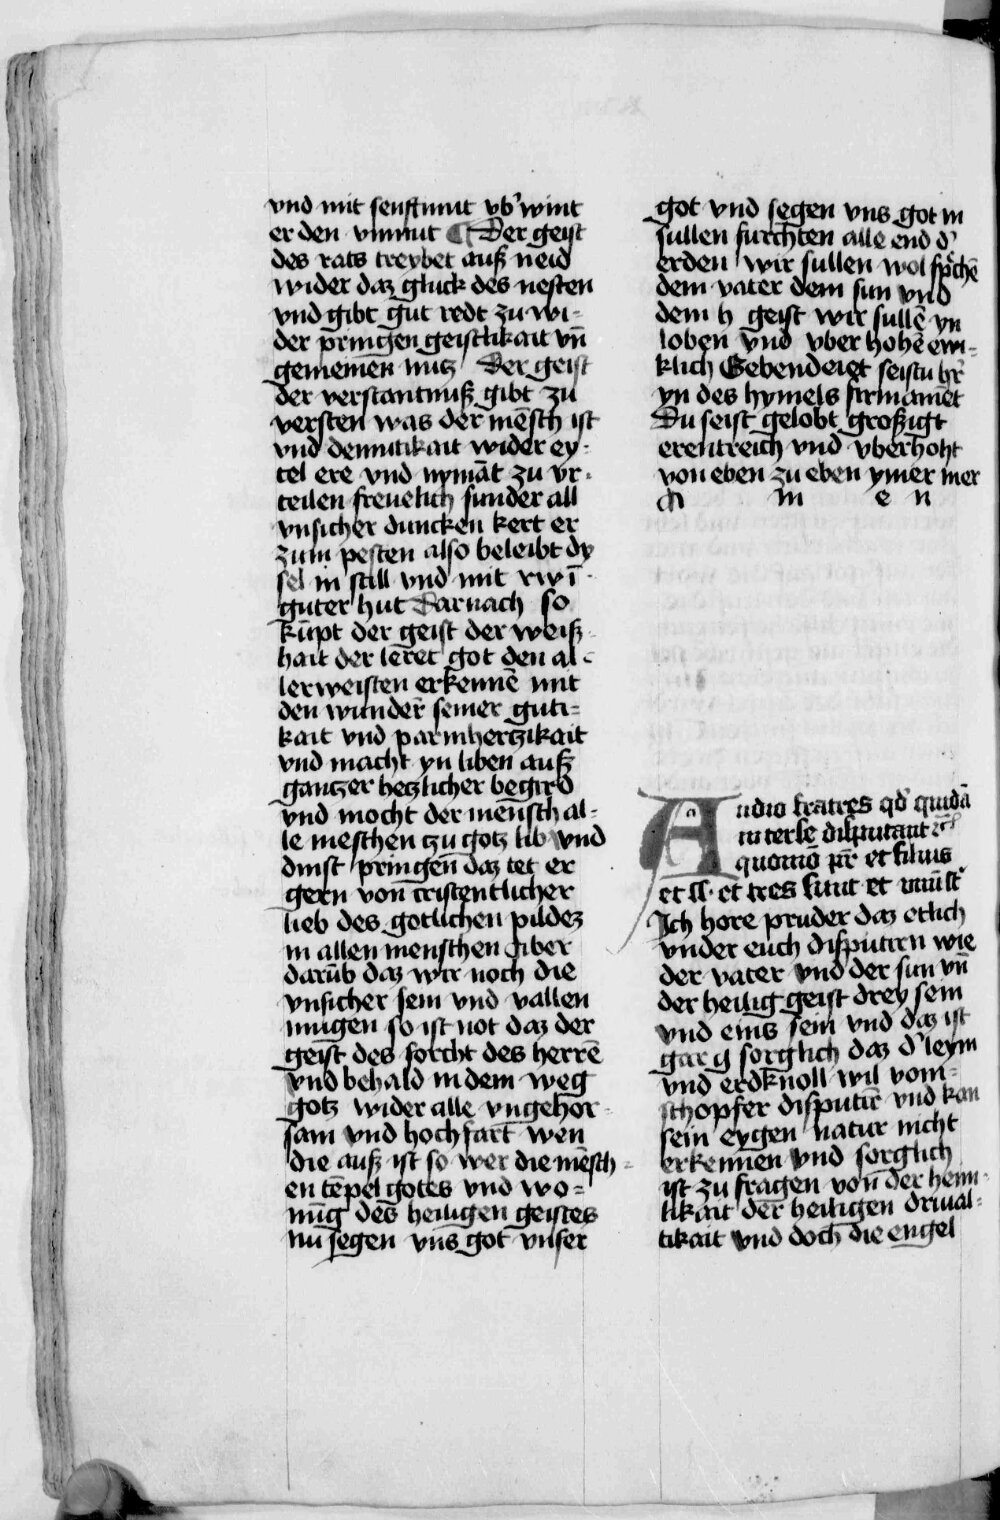 vnd mit senftmut vb'wint
er den vnmut ¶ Der geist
des rats treybet auß neid
wider daz gluck des nesten
vnd gibt gut redt zu wi-
der pringen geistlikait vn̄
gemeinen nutz Der geist
der verstantnuß gibt zu
versten was der mēsch ist
vnd demutikait wider ey-
tel ere vnd nymāt zu vr-
teilen freuelich sunder all
vnsicher duncken kert er
zum pesten also beleibt dy
sel in still vnd mit rw ī
guter hut Darnach so
kūpt der geist der weiß-
hait der leret got den al-
lerweisten erkennē mit
den wunder̄ seiner guti-
kait vnd parmhertzikait
vnd macht yn liben auß
gantzer hetzlicher begird
vnd mocht der mensch al-
le meschen tzu gotz lib vnd
dinst pringen daz tet er
gern von cristentlicher
lieb des gotlichen pildez
in allen menschen Aber
darūb daz wir noch die
vnsicher sein vnd vallen
mugen so ist not daz der
geist des forcht des herrē
vnd behald in dem weg
gotz wider alle vngehor-
sam vnd hochfart wen
die auß ist so wer die mēsch-
en tēpel gotes vnd wo-
nūg des heiligen geistes
Nu segen vns got vnser
got vnd segen vns got in
sullen furchten alle end d'
erden wir sullen wol sp̄chē
dem vater dem sun vnd
dem h geist wir sullē yn
loben vnd vber hohē ewi-
klich Gebendeiet seistu hr̄
yn des hymels firmamēt
Du seist gelobt großigt
erentreich vnd vberhoht
von eben zu eben ymer mer
A m e n
Audio fratres qd' quidā
inter se disputant
quomō pr̄ et filius
et ss. et tres sunt et vnū st̄
Ich hore pruder daz etlich
vnder euch disputirn wie
der vater vnd der sun vn̄
der heilig geist drey sein
vnd eins sein vnd daz ist
gar g sorglich daz d' leym
vnd erdknoll wil vom
schopfer disputir̄ vnd kan
sein eygen natur nicht
erkennen vnd sorglich
ist zu fragen von der heim-
likait der heiligen driual-
tikait vnd doch die engel